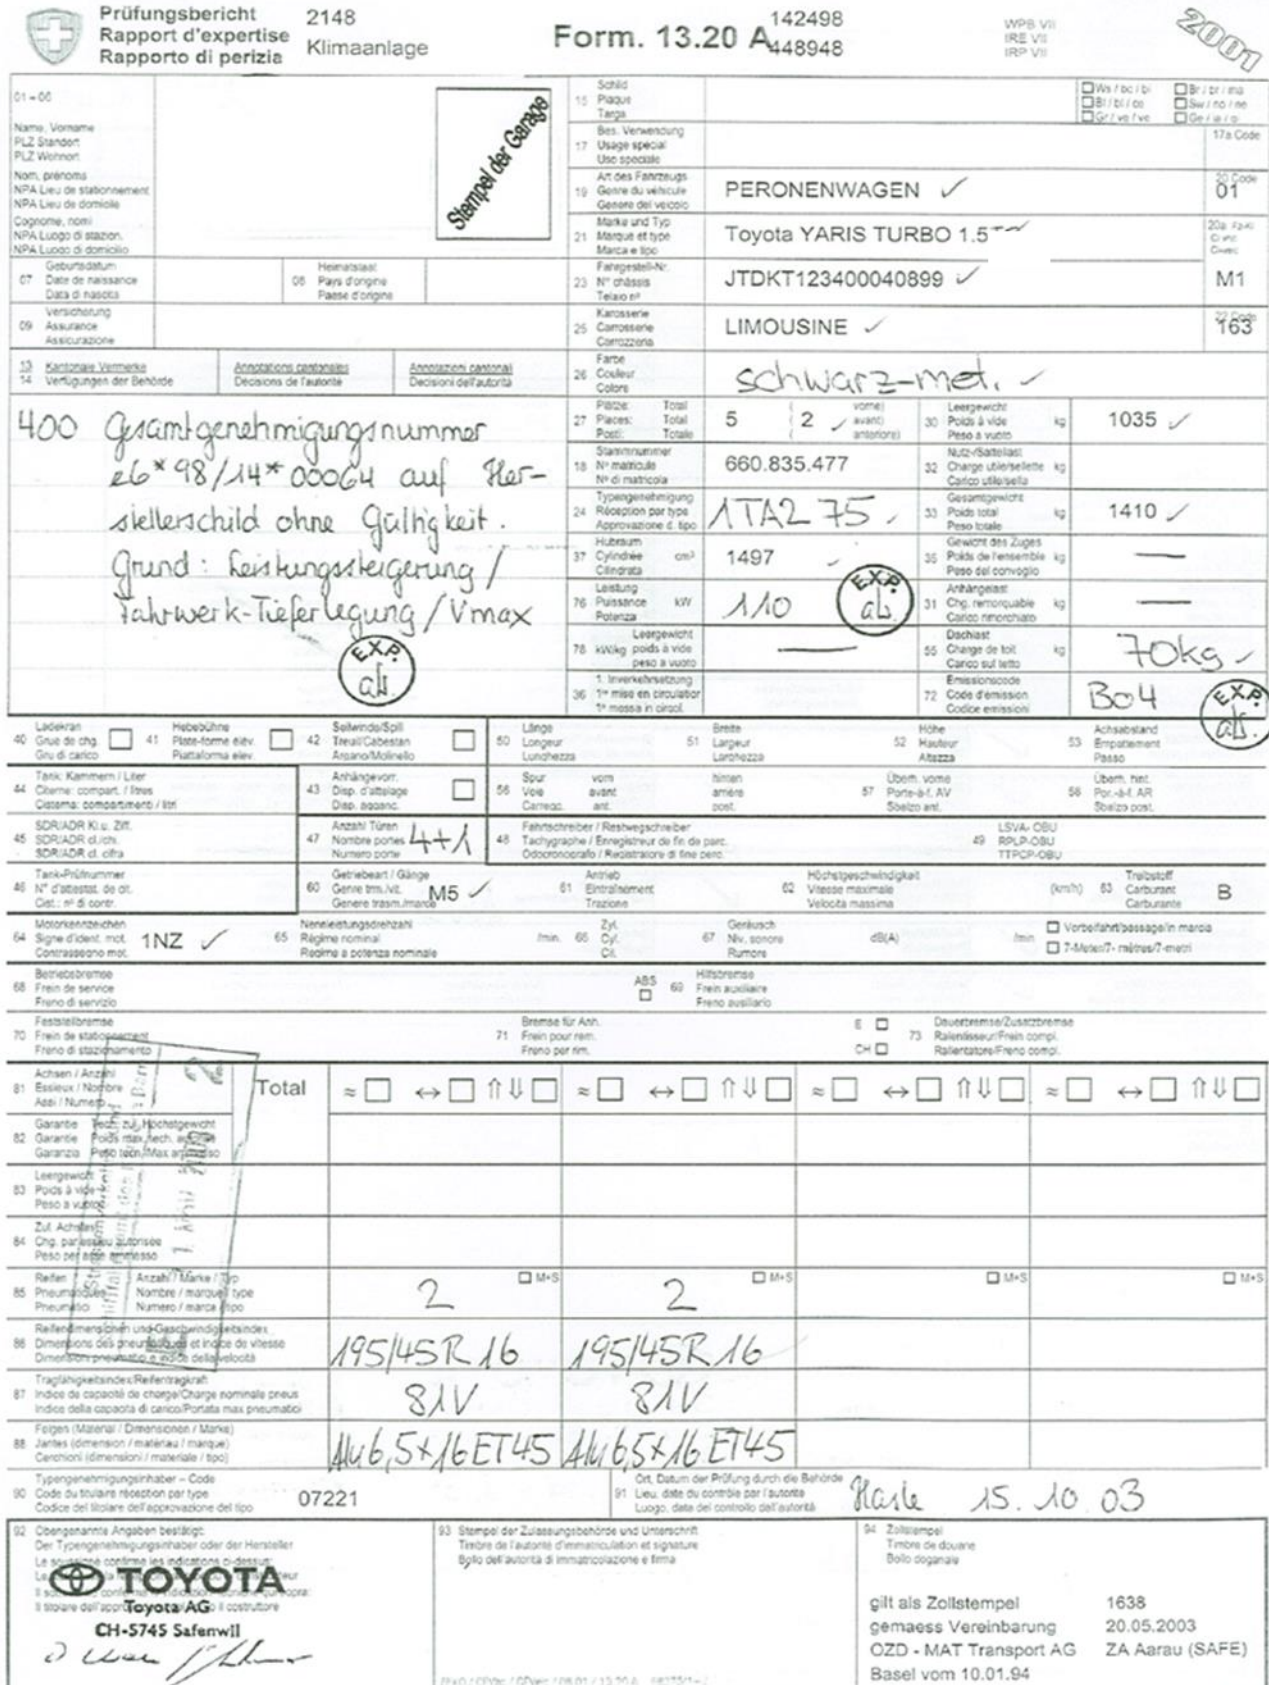 Prüfungsbericht
Rapport d'expertise
Rapporto di perizia
2148
Klimaanlage
Form. 13.20 A
142498
448948
WPB VII
IRE VII
IRP VII
2001
01 – 06
Name, Vorname
PLZ Standort
PLZ Wohnort
Nom, prénoms
NPA Lieu de stationnement
NPA Lieu de domicile
Cognome, nomi
NPA Luogo di stazion.
NPA Luogo di domicilio
Stempel der Garage
15 Schild
Plaque
Targa
17 Bes. Verwendung
Usage spécial
Uso speciale
17a Code
19 Art des Fahrzeugs
Genre du véhicule
Genere del veicolo
PERONENWAGEN ✓
20 Code
01
21 Marke und Typ
Marque et type
Marca e tipo
Toyota YARIS TURBO 1.5
07 Geburtsdatum
Date de naissance
Data di nascita
08 Heimatstaat
Pays d'origine
Paese d'origine
23 Fahrgestell-Nr.
N° châssis
Telaio nº
JTDKT123400040899 ✓
M1
09 Versicherung
Assurance
Assicurazione
25 Karosserie
Carrosserie
Carrozzeria
LIMOUSINE ✓
22 Code
163
13 Kantonale Vermerke
14 Verfügungen der Behörde
Annotations cantonales
Décisions de l'autorité
Annotazioni cantonali
Decisioni dell'autorità
26 Farbe
Couleur
Colore
schwarz-met. ✓
400 Gesamtgenehmigungsnummer
e6*98/14*00064 auf Her-
stellerschild ohne Gültigkeit.
Grund: Leistungssteigerung /
Fahrwerk-Tieferlegung / Vmax
EXP.
27 Plätze: Total
Places: Total
Posti: Totale
5 ( 2 ✓ vorne)
avant)
anteriore)
30 Leergewicht
Poids à vide kg
Peso a vuoto
1035 ✓
18 Stammnummer
N° matricule
Nº di matricola
660.835.477
32 Nutz-/Sattellast
Charge utile/sellette kg
Carico utile/sella
24 Typengenehmigung
Réception par type
Approvazione d. tipo
1TA2 75
33 Gesamtgewicht
Poids total kg
Peso totale
1410 ✓
37 Hubraum
Cylindrée cm³
Cilindrata
1497
35 Gewicht des Zuges
Poids de l'ensemble kg
Peso del convoglio
—
76 Leistung
Puissance kW
Potenza
110
EXP.
31 Anhängelast
Chg. remorquable kg
Carico rimorchiato
—
78 Leergewicht
kW/kg poids à vide
peso a vuoto
—
55 Dachlast
Charge de toit kg
Carico sul tetto
70kg ✓
36 1. Inverkehrsetzung
1re mise en circulation
1ª messa in circol.
72 Emissionscode
Code d'émission
Codice emissioni
B04
EXP.
40 Ladekran
Grue de chg.
Gru di carico
41 Hebebühne
Plate-forme élév.
Piattaforma elev.
42 Seilwinde/Spill
Treuil/Cabestan
Argano/Molinello
50 Länge
Longueur
Lunghezza
51 Breite
Largeur
Larghezza
52 Höhe
Hauteur
Altezza
53 Achsabstand
Empattement
Passo
44 Tank: Kammern / Liter
Citerne: compart. / litres
Cisterna: compartimenti / litri
43 Anhängevorr.
Disp. d'attelage
Disp. aganc.
56 Spur vorn hinten
Voie avant arrière
Carregg. ant. post.
57 Überh. vorne
Porte-à-f. AV
Sbalzo ant.
58 Überh. hint.
Por.-à-f. AR
Sbalzo post.
45 SDR/ADR Kl.u. Ziff.
SDR/ADR cl./chi.
SDR/ADR cl. cifra
47 Anzahl Türen
Nombre portes
Numero porte
4+1
48 Fahrtschreiber / Restwegschreiber
Tachygraphe / Enregistreur de fin de parc.
Odocronografo / Registratore di fine perc.
49 LSVA-OBU
RPLP-OBU
TTPCP-OBU
46 Tank-Prüfnummer
N° d'attestat. de cit.
Cist.: nº di contr.
60 Getriebeart / Gänge
Genre trm./vit.
Genere trasm./marce
M5 ✓
61 Antrieb
Entraînement
Trazione
62 Höchstgeschwindigkeit
Vitesse maximale (km/h)
Velocità massima
63 Treibstoff
Carburant
Carburante
B
64 Motorkennzeichen
Signe d'ident. mot.
Contrassegno mot.
1NZ ✓
65 Nennleistungsdrehzahl
Régime nominal /min.
Regime a potenza nominale
66 Zyl.
Cyl.
Cil.
67 Geräusch
Niv. sonore dB(A) /min
Rumore
Vorbeifahrt/passage/in marcia
7-Meter/7- mètres/7-metri
68 Betriebsbremse
Frein de service
Freno di servizio
ABS
69 Hilfsbremse
Frein auxiliaire
Freno ausiliario
70 Feststellbremse
Frein de stationnement
Freno di stazionamento
71 Bremse für Anh.
Frein pour rem.
Freno per rim.
E
CH
73 Dauerbremse/Zusatzbremse
Ralentisseur/Frein compl.
Rallentatore/Freno compl.
81 Achsen / Anzahl
Essieux / Nombre
Assi / Numero
Total
≈ ↔ ⇑⇓ ≈ ↔ ⇑⇓ ≈ ↔ ⇑⇓ ≈ ↔ ⇑⇓
82 Garantie Tech. zul. Höchstgewicht
Garantie Poids max. tech.
Garanzia Peso tecn./Max
83 Leergewicht
Poids à vide
Peso a vuoto
84 Zul. Achslast
Chg. par essieu autorisée
Peso per asse ammesso
85 Reifen Anzahl / Marke / Typ
Pneumatiques Nombre / marque / type
Pneumatici Numero / marca / tipo
2 M+S 2 M+S M+S M+S
86 Reifendimensionen und Geschwindigkeitsindex
Dimensions des pneumatiques et indice de vitesse
Dimensioni pneumatici e indice della velocità
195/45R 16 195/45R 16
87 Tragfähigkeitsindex/Reifentragkraft
Indice de capacité de charge/Charge nominale pneus
Indice della capacità di carico/Portata max pneumatici
81V 81V
88 Felgen (Material / Dimensionen / Marke)
Jantes (dimension / matériau / marque)
Cerchioni (dimensioni / materiale / tipo)
Alu 6,5x16 ET45 Alu 6,5x16 ET45
90 Typengenehmigungsinhaber – Code
Code du titulaire réception par type
Codice del titolare dell'approvazione del tipo
07221
91 Ort, Datum der Prüfung durch die Behörde
Lieu, date du contrôle par l'autorité
Luogo, data del controllo dell'autorità
Hasle 15. 10 03
92 Obengenannte Angaben bestätigt:
Der Typengenehmigungsinhaber oder der Hersteller
Le soussigné confirme les indications ci-dessus:
TOYOTA
Toyota AG
CH-5745 Safenwil
93 Stempel der Zulassungsbehörde und Unterschrift
Timbre de l'autorité d'immatriculation et signature
Bollo dell'autorità di immatricolazione e firma
94 Zollstempel
Timbre de douane
Bollo doganale
gilt als Zollstempel 1638
gemaess Vereinbarung 20.05.2003
OZD - MAT Transport AG ZA Aarau (SAFE)
Basel vom 10.01.94